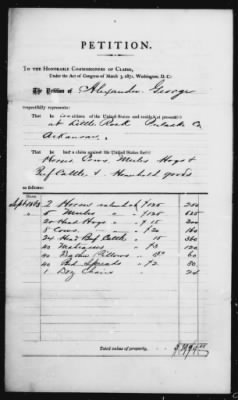 PETITION.
TO THE HONORABLE COMMISSIONERS OF CLAIMS,
Under the Act of Congress of March 3, 1871, Washington, D.C.:
The Petition of Alexander George
respectfully represents:
That he is a citizen of the United States and resided at present
at Little Rock Pulaski Co
Arkansas,
That he has a claim against the United States for
Horses Cows, Mules Hogs &
Beef Cattle, & Household goods
as follows:
Sept 1863 2 Horses valued at $125 250
5 Mules " " $125 625
20 Head Hogs " $15 300
8 Cows " $20 160
24 Head Beef Cattle, " 15 360
40 " $3 120
40 Pillows 60
40 Bed Spreads " $2 80
1 Doz Chairs 24
Total value of property,